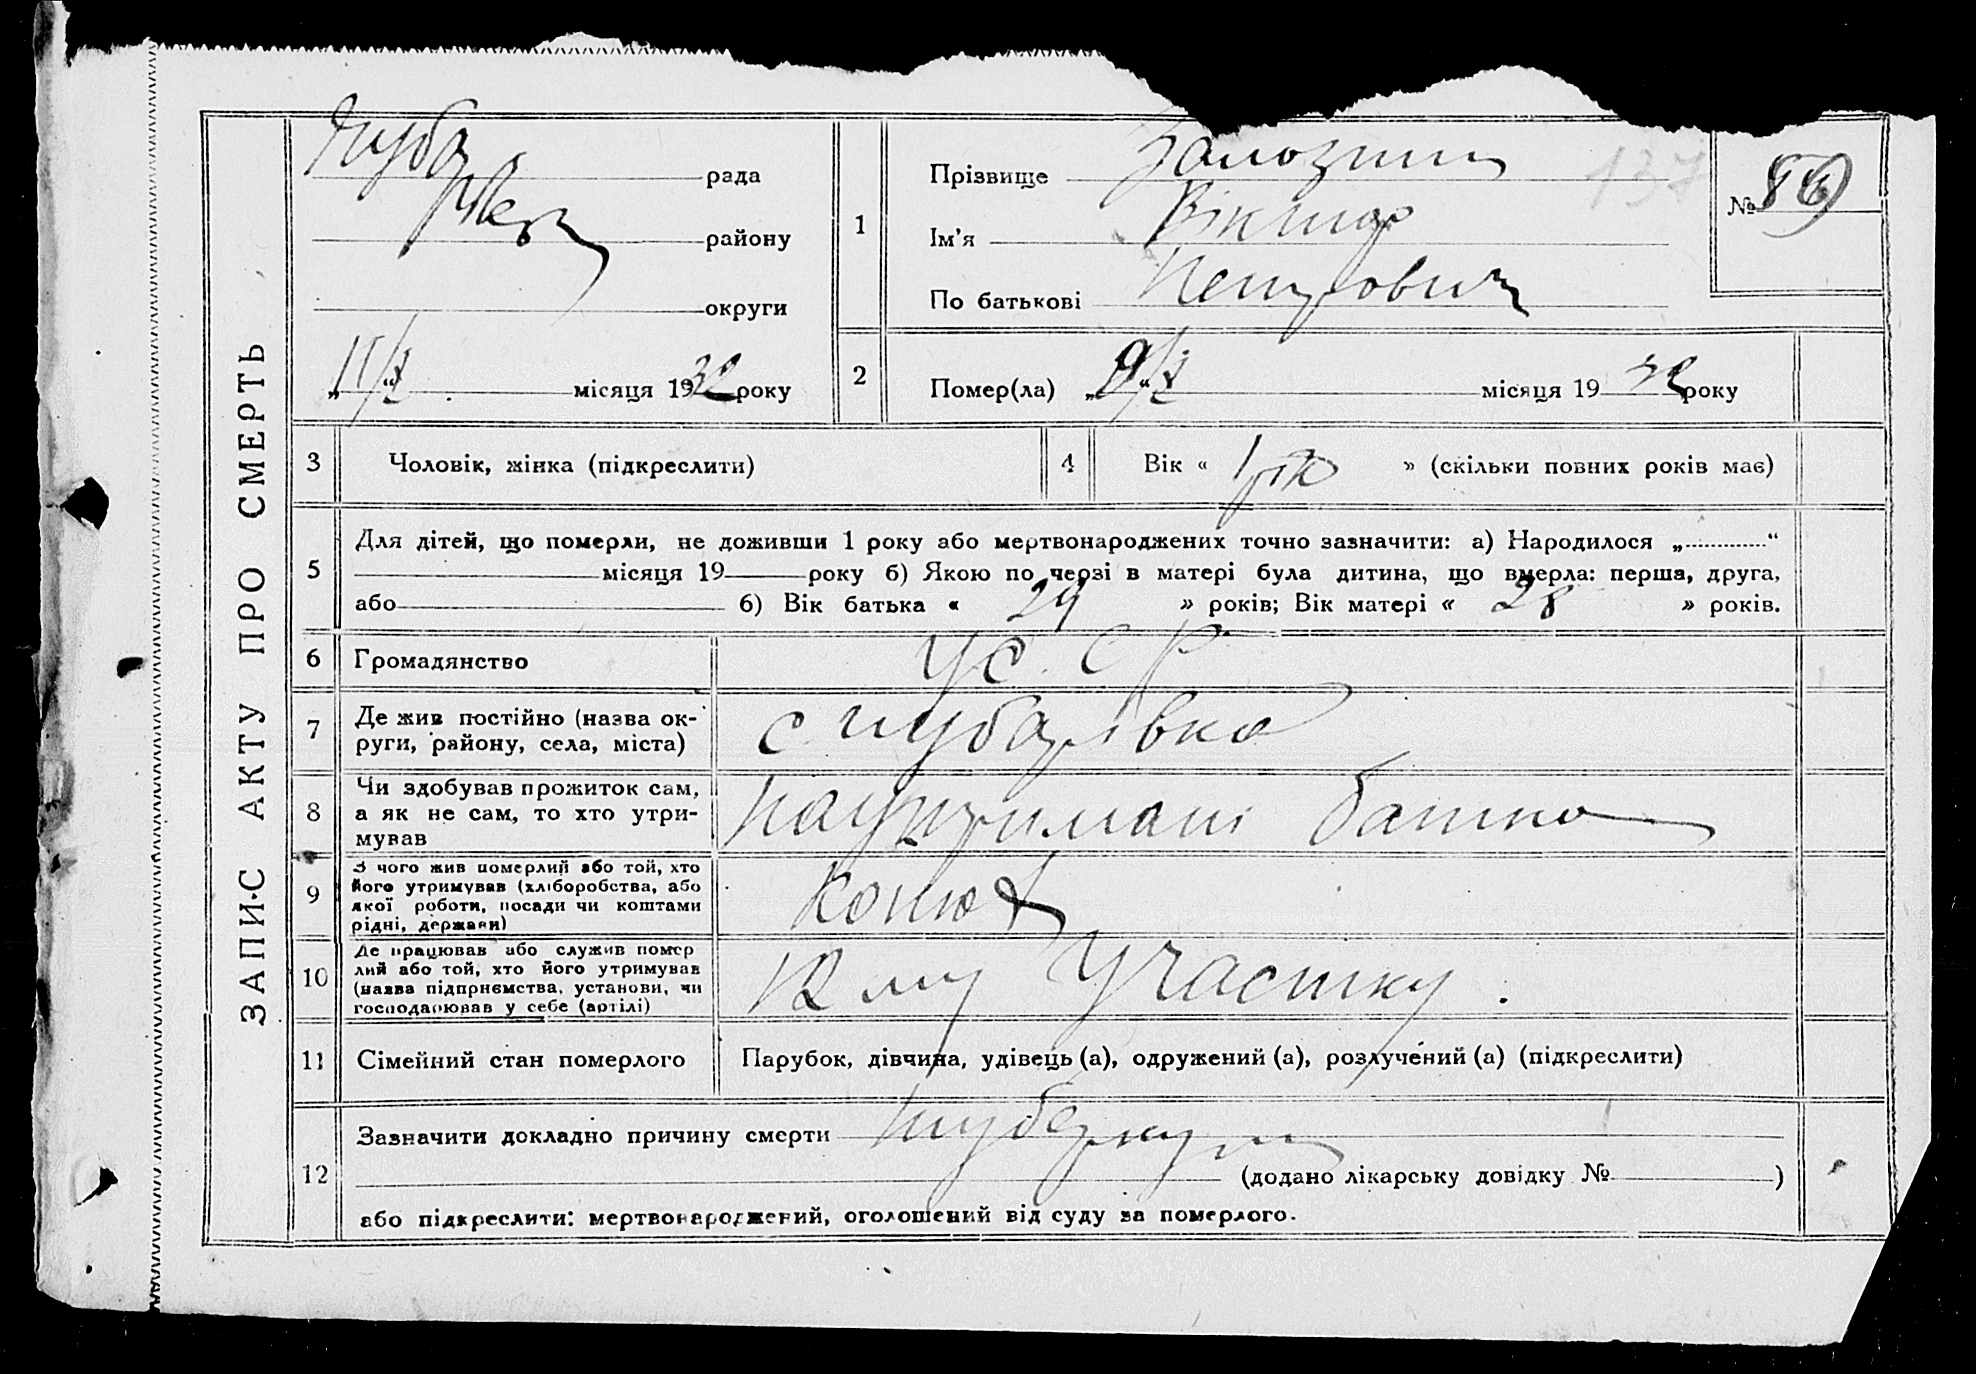 ЗАПИС АКТУ ПРО СМЕРТЬ
рада
району
округи
„11/X“ місяця 1932 року
1
Прізвище
Ім’я Віктор
По батькові Петрович
137
№ 86
2
Помер(ла) „9/X“ місяця 19 32 року
3
Чоловік, жінка (підкреслити)
4
Вік « 1 рік » (скільки повних років має)
5
Для дітей, що померли, не доживши 1 року або мертвонароджених точно зазначити: а) Народилося „ “
місяця 19 року б) Якою по черзі в матері була дитина, що вмерла: перша, друга,
або б) Вік батька « 29 » років; Вік матері « 28 » років.
6
Громадянство
УС.СР
7
Де жив постійно (назва ок-
руги, району, села, міста)
с
8
Чи здобував прожиток сам,
а як не сам, то хто утри-
мував
батька
9
З чого жив померлий або той, хто
його утримував (хліборобства, або
якої роботи, посади чи коштами
рідні, держави)
Конюх
10
Де працював або служив помер
лий або той, хто його утримував
(назва підприємства, установи, чи
господарював у себе (артілі)
участку.
11
Сімейний стан померлого
Парубок, дівчина, удівець (а), одружений (а), розлучений (а) (підкреслити)
12
Зазначити докладно причину смерти
(додано лікарську довідку № )
або підкреслити: мертвонароджений, оголошений від суду за померлого.